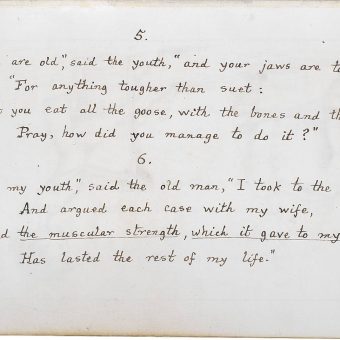 5.
are old," said the youth, "and your jaws are to
"For anything tougher than suet:
you eat all the goose, with the bones and th
Pray, how did you manage to do it?"
6.
my youth," said the old man, "I took to the
And argued each case with my wife,
d the muscular strength, which it gave to my
Has lasted the rest of my life."